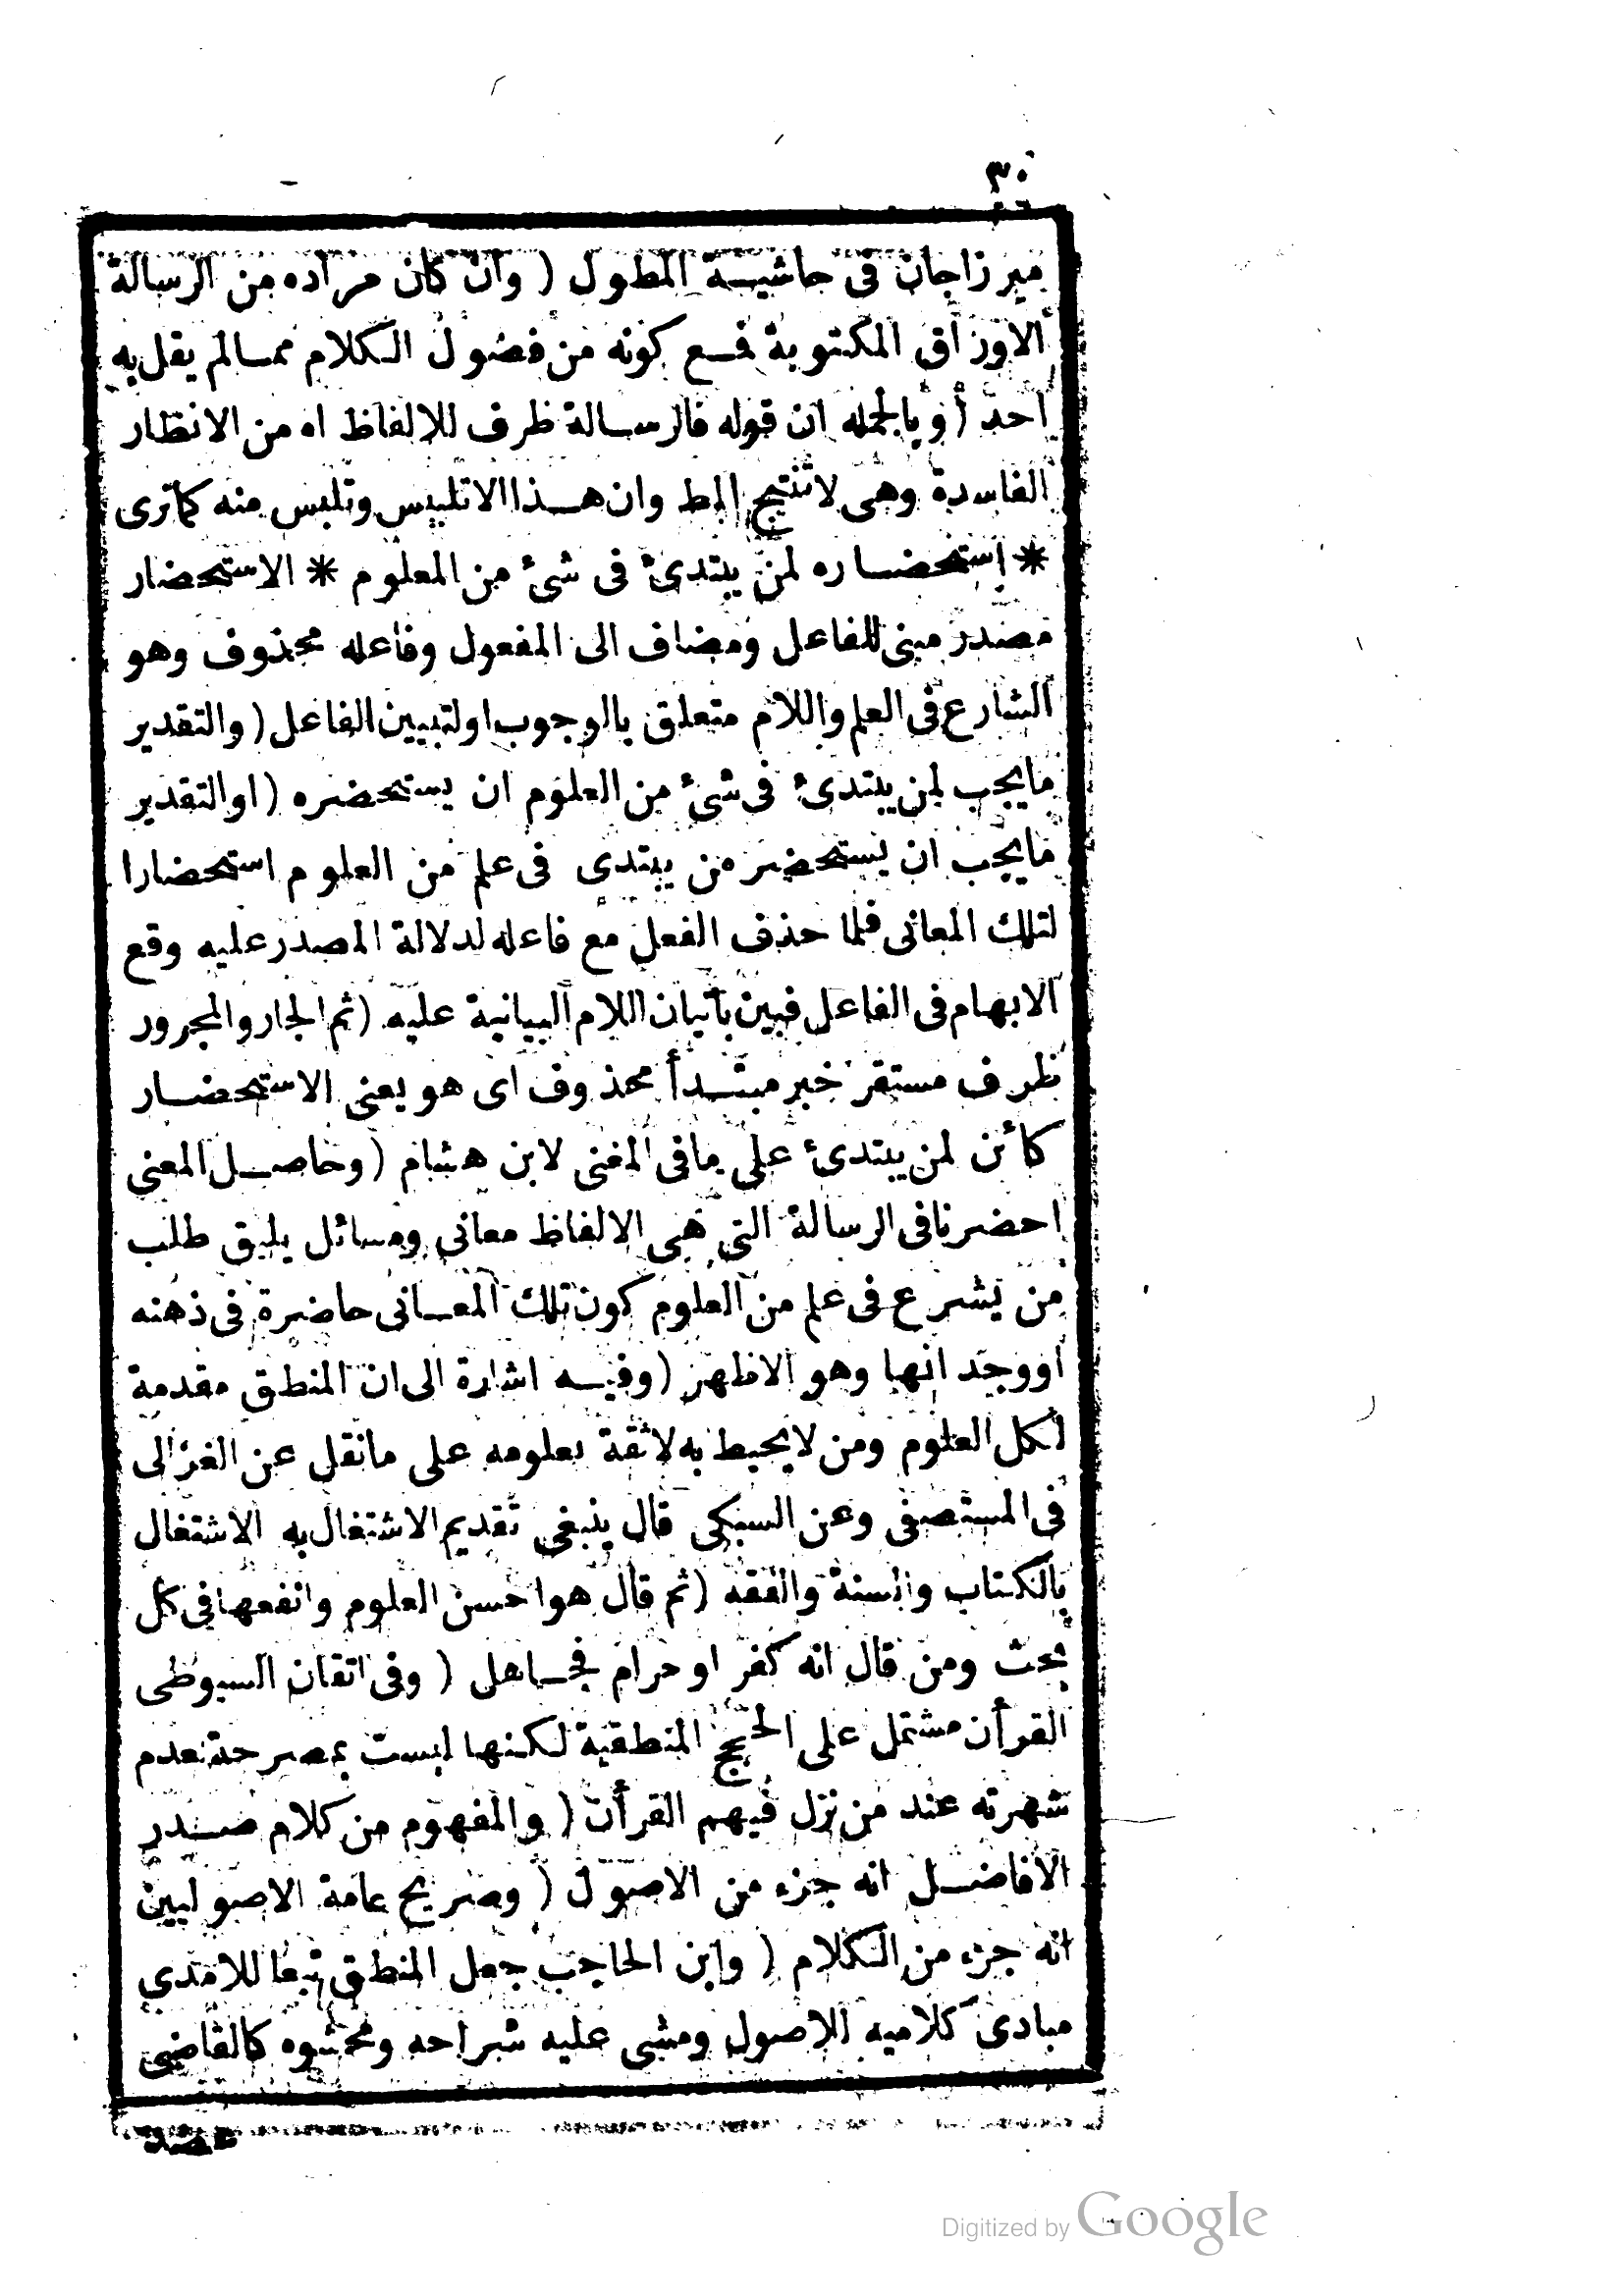 ٣٠
ميرزاجان فى حاشيـة المطول ( وان كان مراده من الرسالة
الاوراق المكتوبة فـع كونه من فضول الـكلام ممـالم يقل به
احد ( وبالجمله ان قوله فالرسـالة ظرف للالفاظ اه من الانظار
الفاسدة وهى لاتنتج المط وان هـذا الاتلبيس وتلبس منه كماترى
* استحضـاره لمن يبتدئ فى شئ من المعلوم * الاستحضار
مصدر مبنى للفاعل ومضاف الى المفعول وفاعله محذوف وهو
الشارع فى العلم واللام متعلق بالوجوب اولتبيين الفاعل ( والتقدير
مايجب لمن يبتدئ فى شئ من العلوم ان يستحضره ( اوالتقدير
مايجب ان يستحضر من يبتدى فى علم من العلوم استحضارا
لتلك المعانى فلما حذف الفعل مع فاعله لدلالة المصدر عليه وقع
الابهام فى الفاعل فبين باتيان اللام البيانية عليه ( ثم الجار والمجرور
ظرف مستقر خبر مبتـدأ محذوف اى هو يعنى الاستحضـار
كائن لمن يبتدئ على مافى المغنى لابن هشام ( وحاصـل المعنى
احضرنا فى الرسالة التى هى الالفاظ معانى ومسائل يليق طلب
من يشرع فى علم من العلوم كون تلك المعـانى حاضرة فى ذهنه
اووجد انها وهو الاظهر ( وفيـه اشارة الى ان المنطق مقدمة
لكل العلوم ومن لايحيط به لاثقة بعلومه على مانقل عن الغزالى
فى المستصفى وعن السبكى قال ينبغى تقديم الاشتغال به الاشتغال
بالكتاب والسنة والفقه ( ثم قال هو احسن العلوم وانفعها فى كل
بحث ومن قال انه كفر او حرام فجـاهل ( وفى اتقان السيوطى
القرأن مشتمل على الحجج المنطقية لكنها ليست بمصرحة لعدم
شهرته عند من نزل فيهم القرأن ( والمفهوم من كلام صـدر
الافاضـل انه جزء من الاصول ( وصريح عامة الاصوليين
انه جزء من الـكلام ( وابن الحاجب جعل المنطق تبعا للامدى
مبادى كلاميه للاصول ومشى عليه شراحه ومحشوه كالقاضى
عضد
Digitized by Google